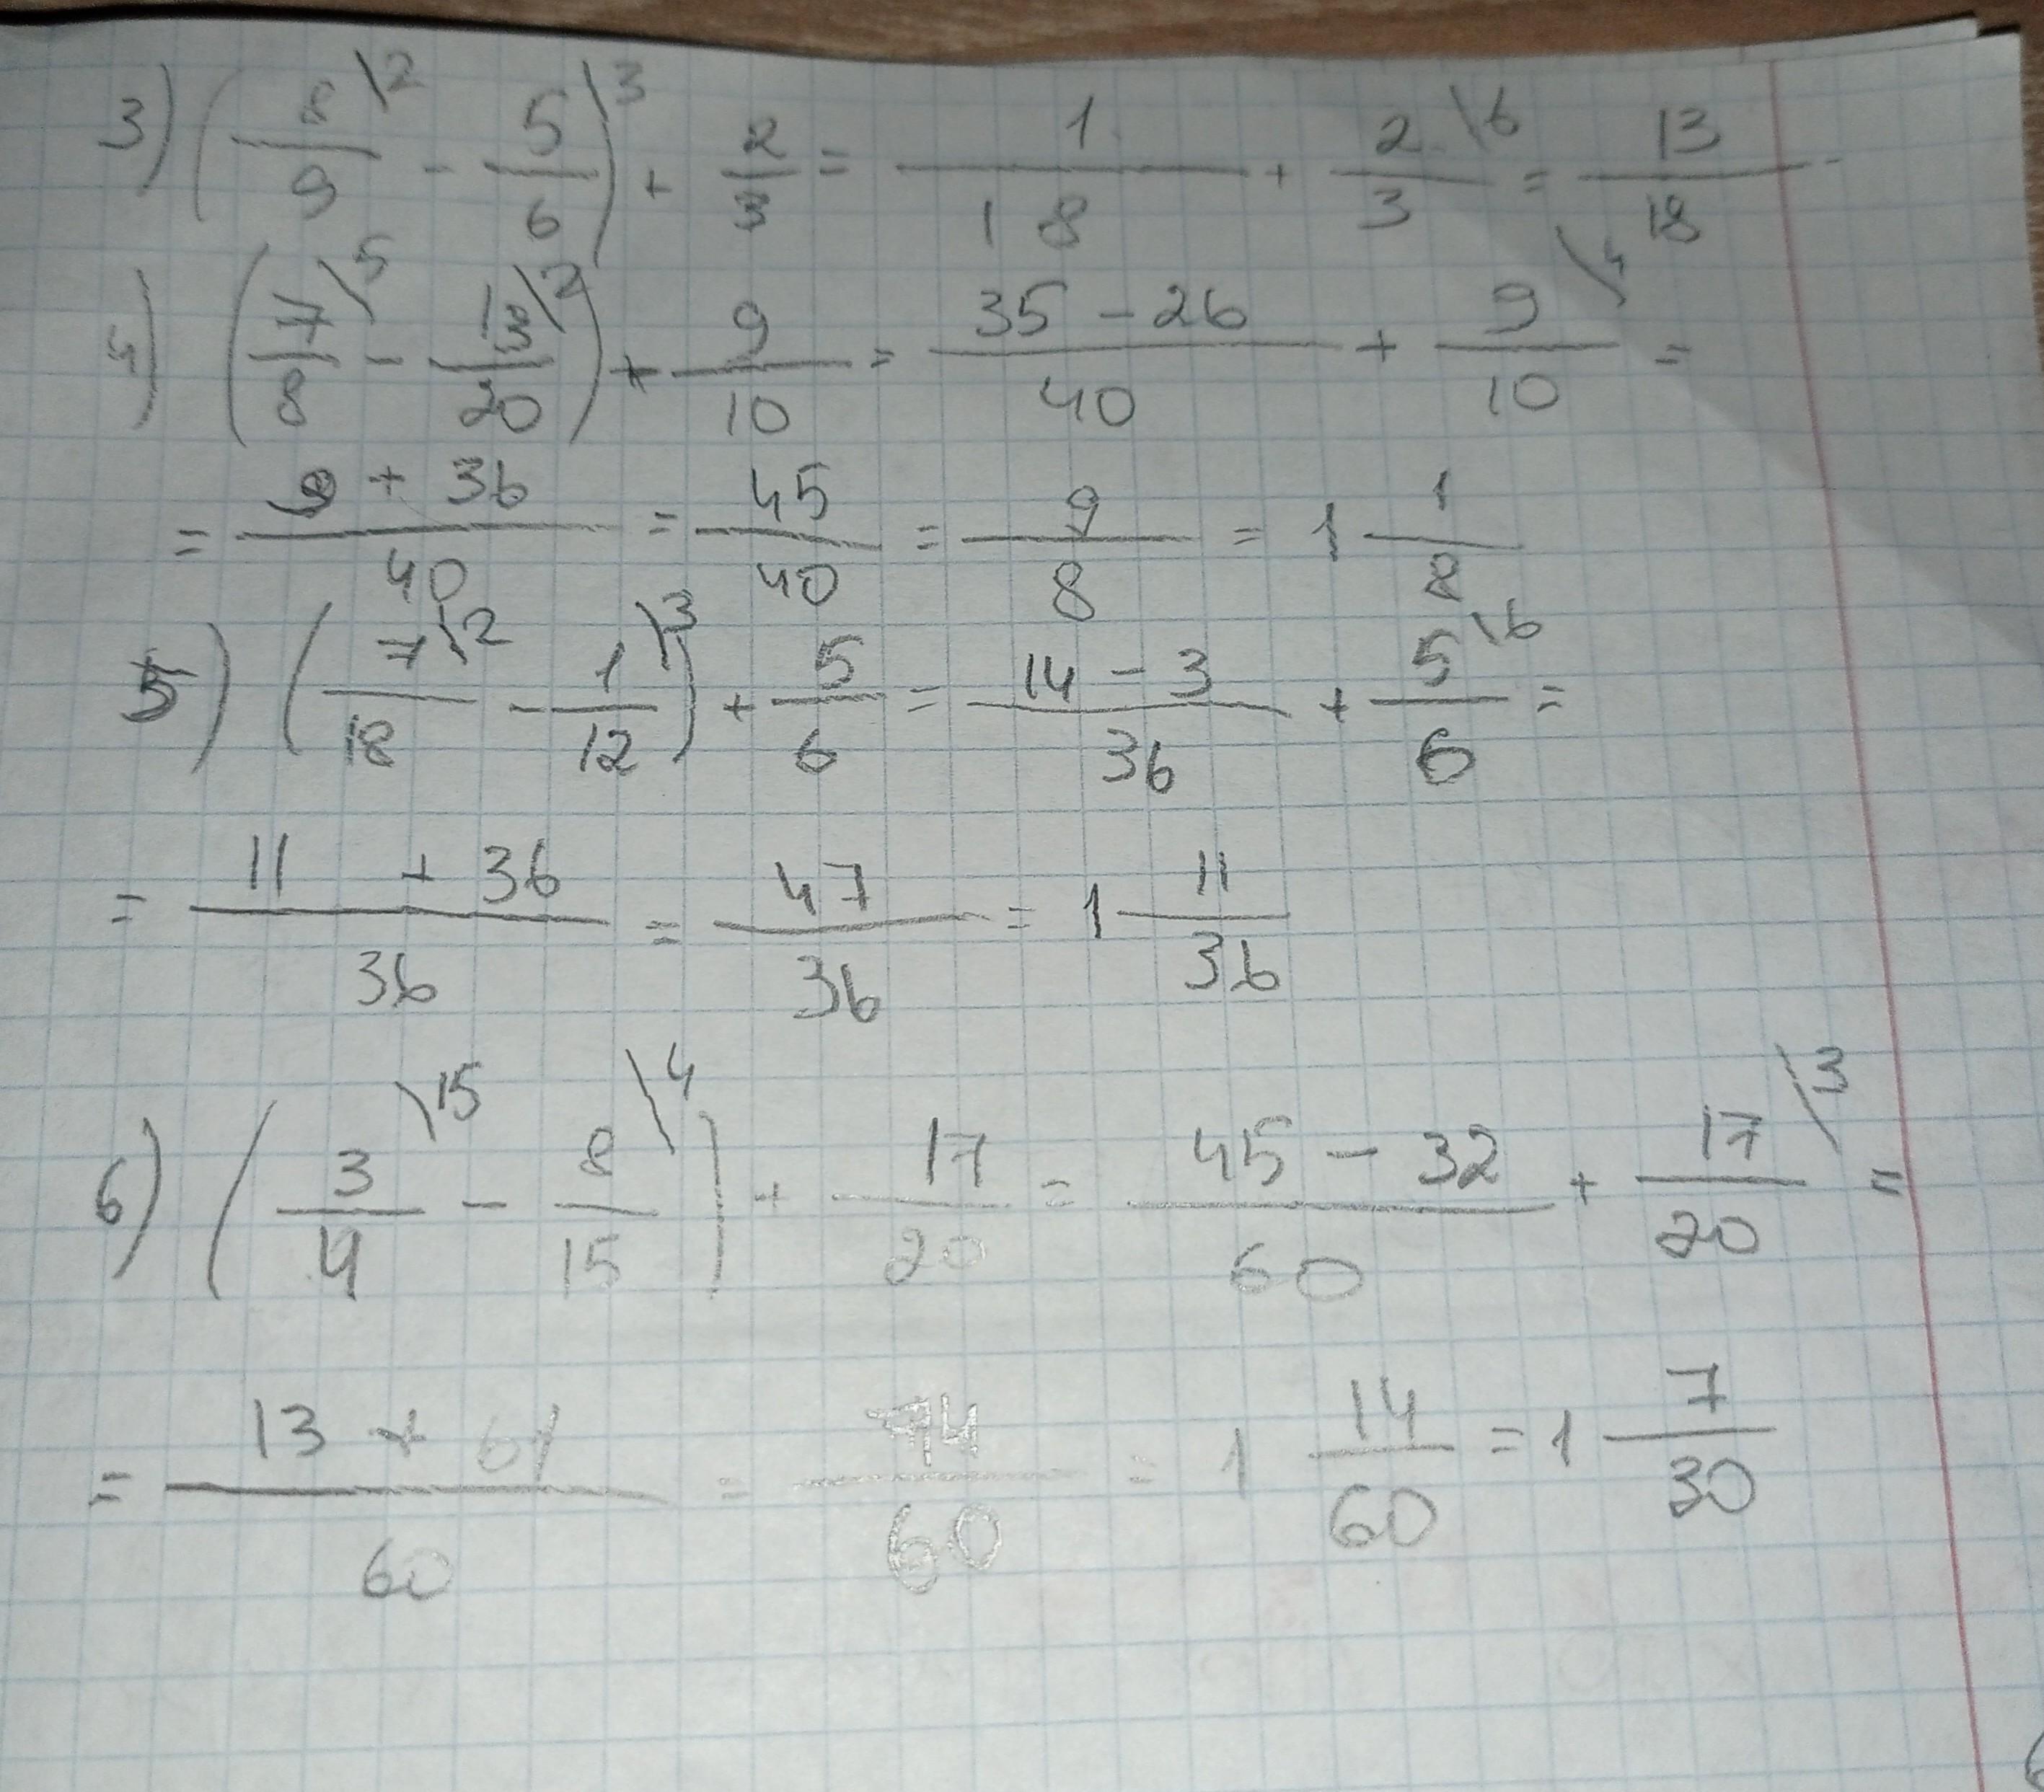 3) (8/9 \2 - 5/6 \3) + 2/3 = 1/18 + 2/3 \6 = 13/18
4) (7/8 \5 - 13/20 \2) + 9/10 = (35 - 26)/40 + 9/10 \4 =
= (9 + 36)/40 = 45/40 = 9/8 = 1 1/8
5) (7/18 \2 - 1/12 \3) + 5/6 = (14 - 3)/36 + 5/6 \6 =
= (11 + 36)/36 = 47/36 = 1 11/36
6) (3/4 \15 - 8/15 \4) + 17/20 = (45 - 32)/60 + 17/20 \3 =
= (13 + 61)/60 = 74/60 = 1 14/60 = 1 7/30